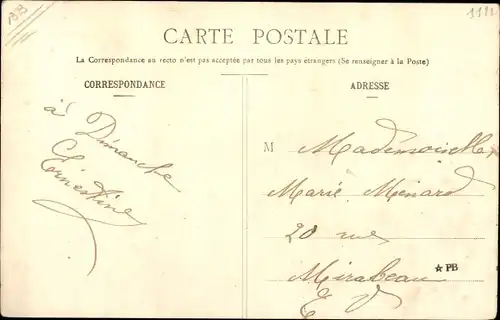 CARTE POSTALE
La Correspondance au recto n'est pas acceptée par tous les pays étrangers (Se renseigner à la Poste)
CORRESPONDANCE
ADRESSE
à Dimanche
Ernestine
M Mademoiselle
Marie Ménard
20 rue
Mirabeau
E V
PB